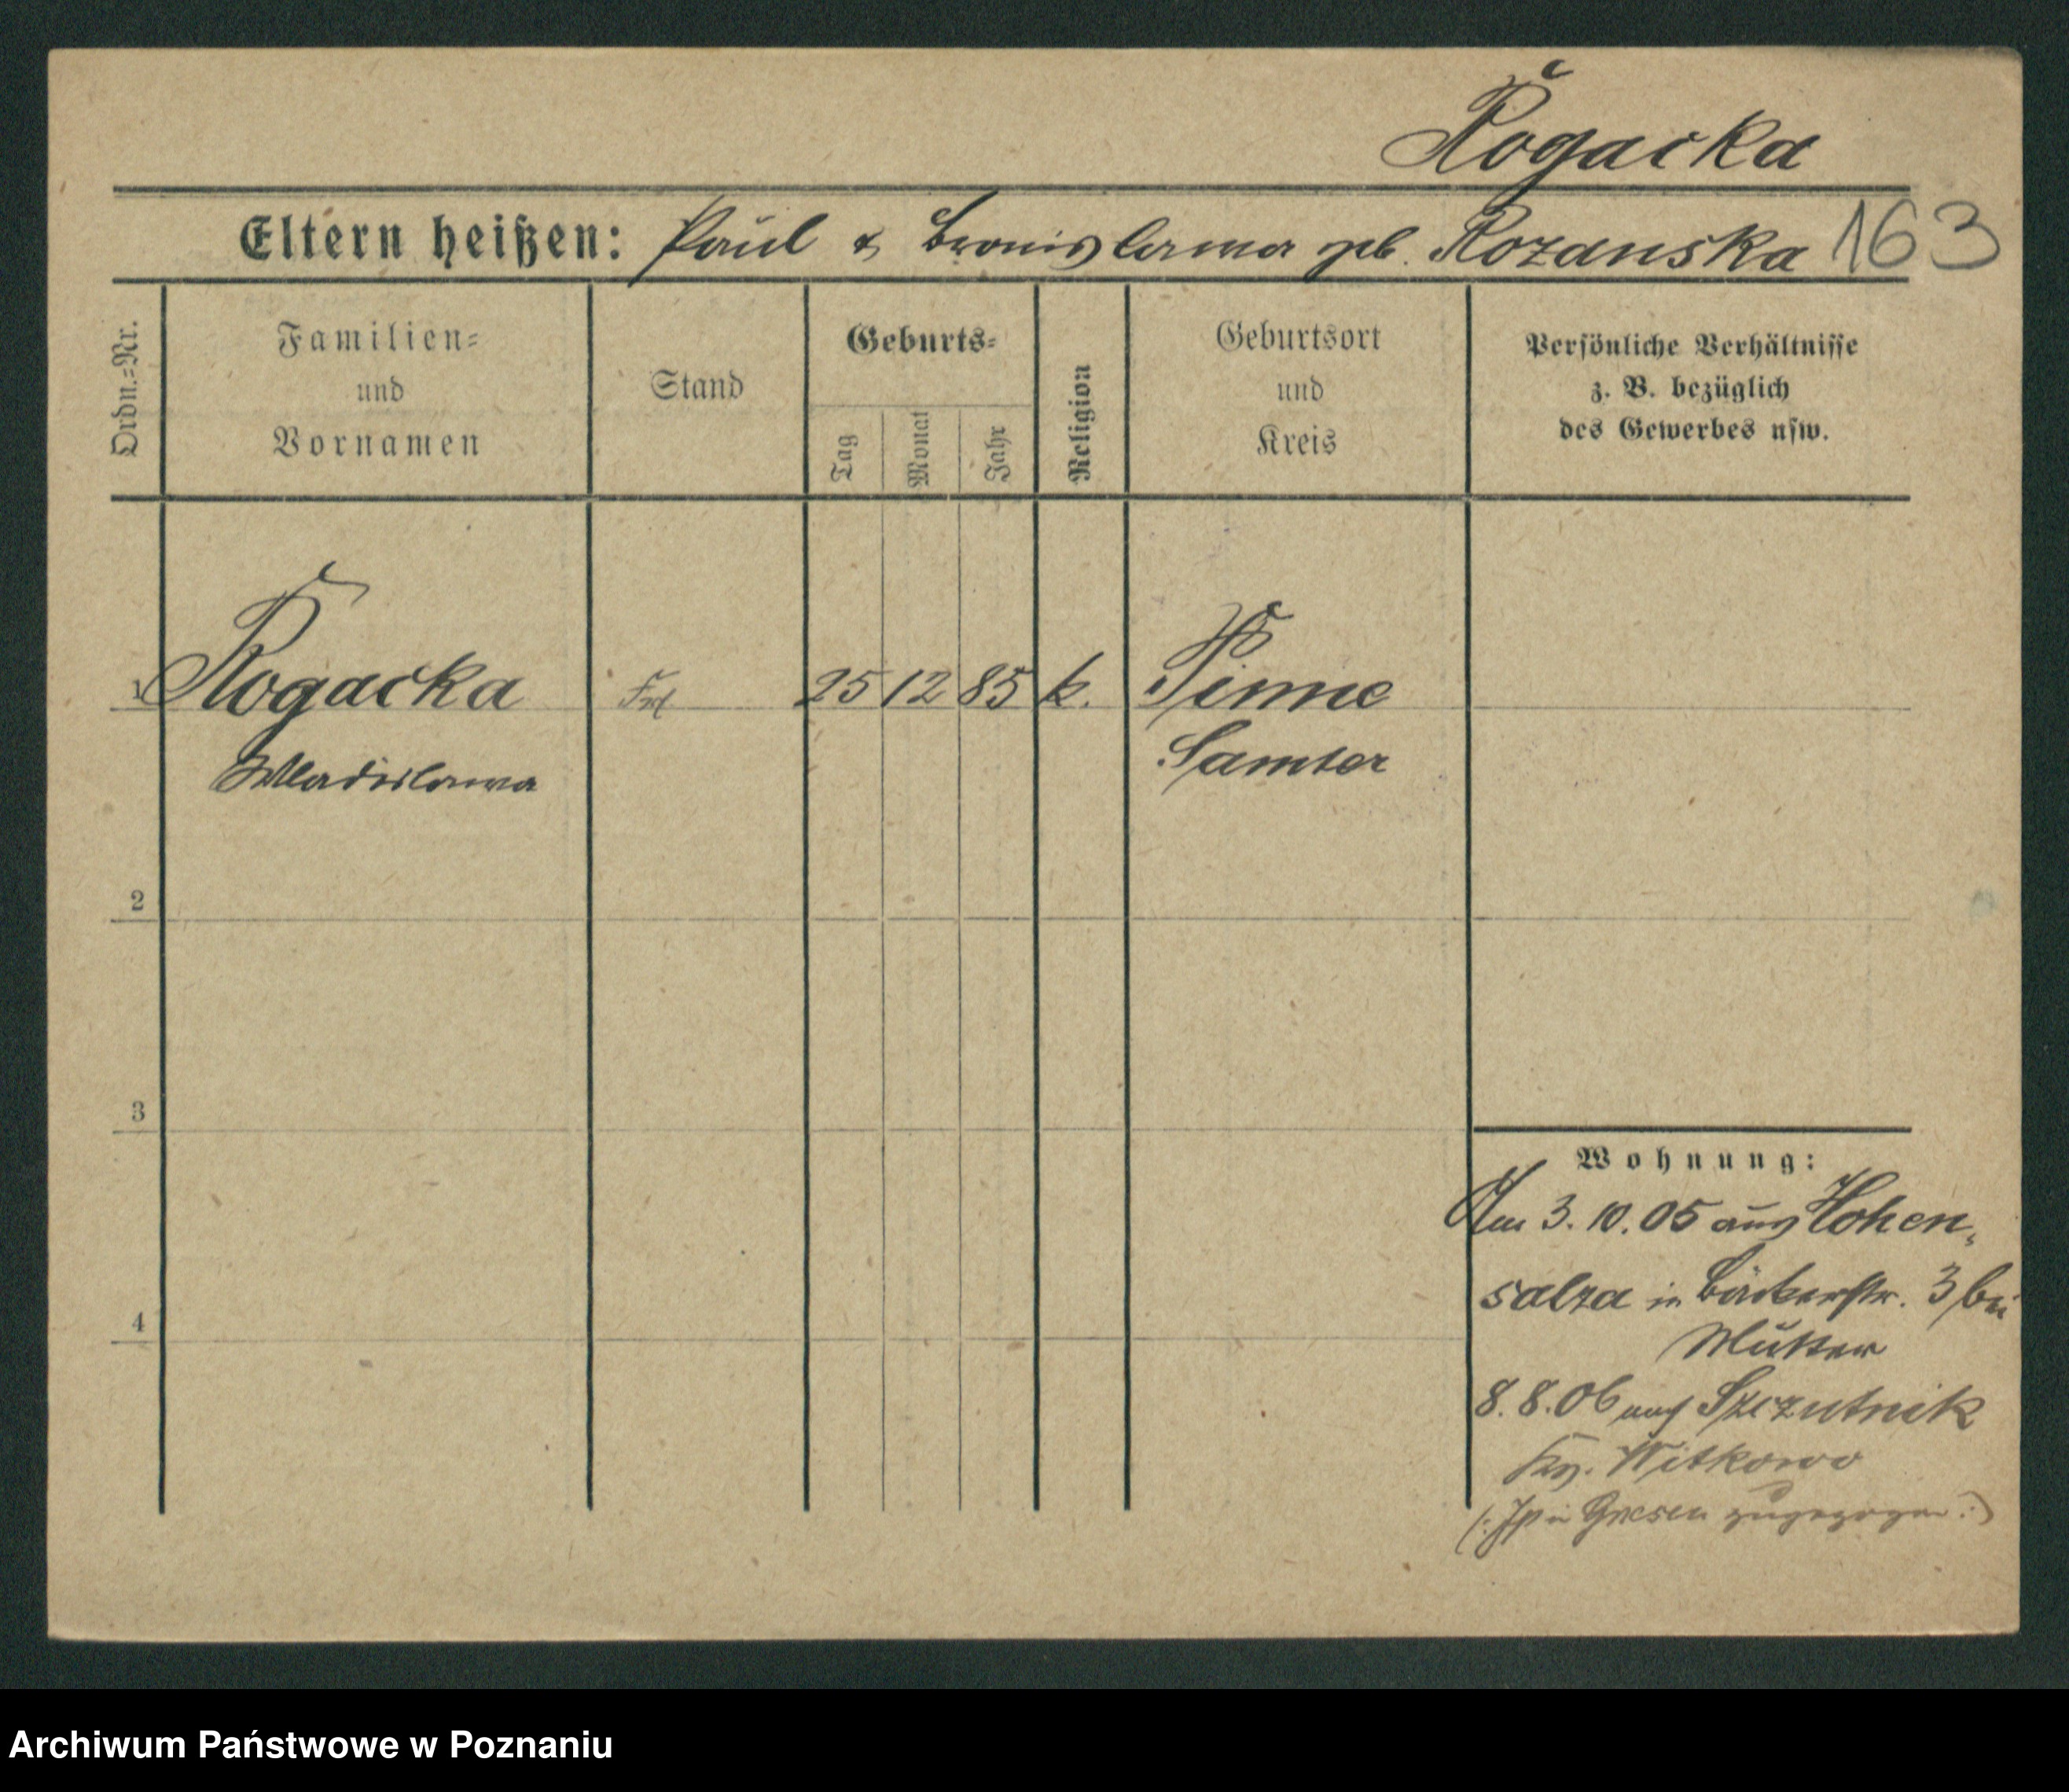 Rogacka
Eltern heißen: Paul & Bronislawa geb. Rozanska 163
Ordn.=Nr.
Familien=
und
Vornamen
Stand
Geburts=
Tag
Monat
Jahr
Religion
Geburtsort
und
Kreis
Persönliche Verhältnisse
z. B. bezüglich
des Gewerbes usw.
1 Rogacka Frl 25 12 85 k. Pinne
Wladislawa Samter
2
3
4
Wohnung:
Am 3. 10. 05 aus Hohen,
salza in Bäckerstr. 3 bei
Mutter
8. 8. 06 nach Szczutnik
Kr. Witkowo
(: in Gnesen zugezogen :)
Archiwum Państwowe w Poznaniu